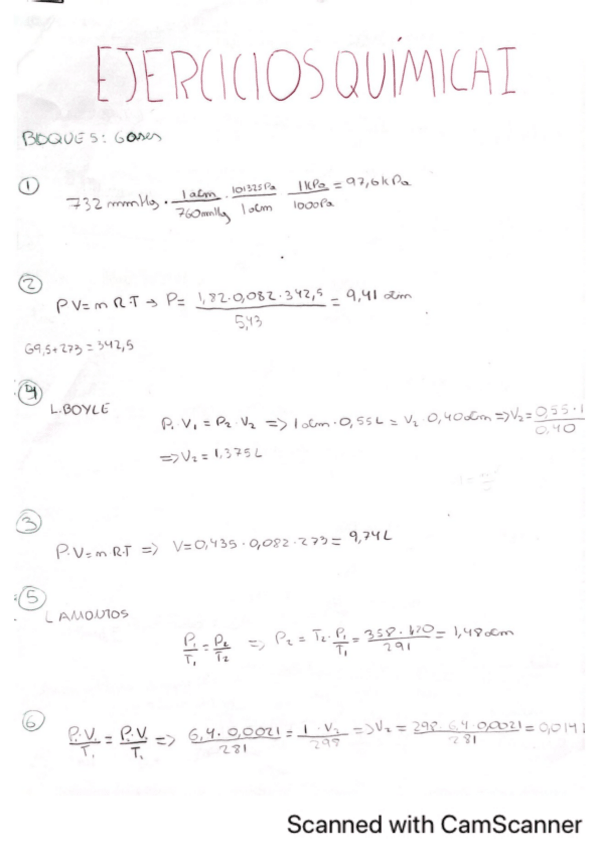 EJERCICIOS QUÍMICA I
BLOQUE 5: Gases
① 732 mmHg · 1 atm / 760 mmHg · 101325 Pa / 1 atm · 1 kPa / 1000 Pa = 97,6 kPa
② PV = n R·T → P = 1,82 · 0,082 · 342,5 / 5,43 = 9,41 atm
69,5 + 273 = 342,5
④ L. BOYLE
P₁ · V₁ = P₂ · V₂ => 1 atm · 0,55 L = V₂ · 0,40 atm => V₂ = 0,55 · 1 / 0,40
=> V₂ = 1,375 L
③ P·V = n R·T => V = 0,435 · 0,082 · 273 = 9,74 L
⑤ L AMONTOS
P₁ / T₁ = P₂ / T₂ => P₂ = T₂ · P₁ / T₁ = 358 · 1,20 / 291 = 1,48 atm
⑥ P₁·V₁ / T₁ = P₁·V₁ / T₁ => 6,4 · 0,0021 / 281 = 1 · V₂ / 298 => V₂ = 298 · 6,4 · 0,0021 / 281 = 0,0141
Scanned with CamScanner